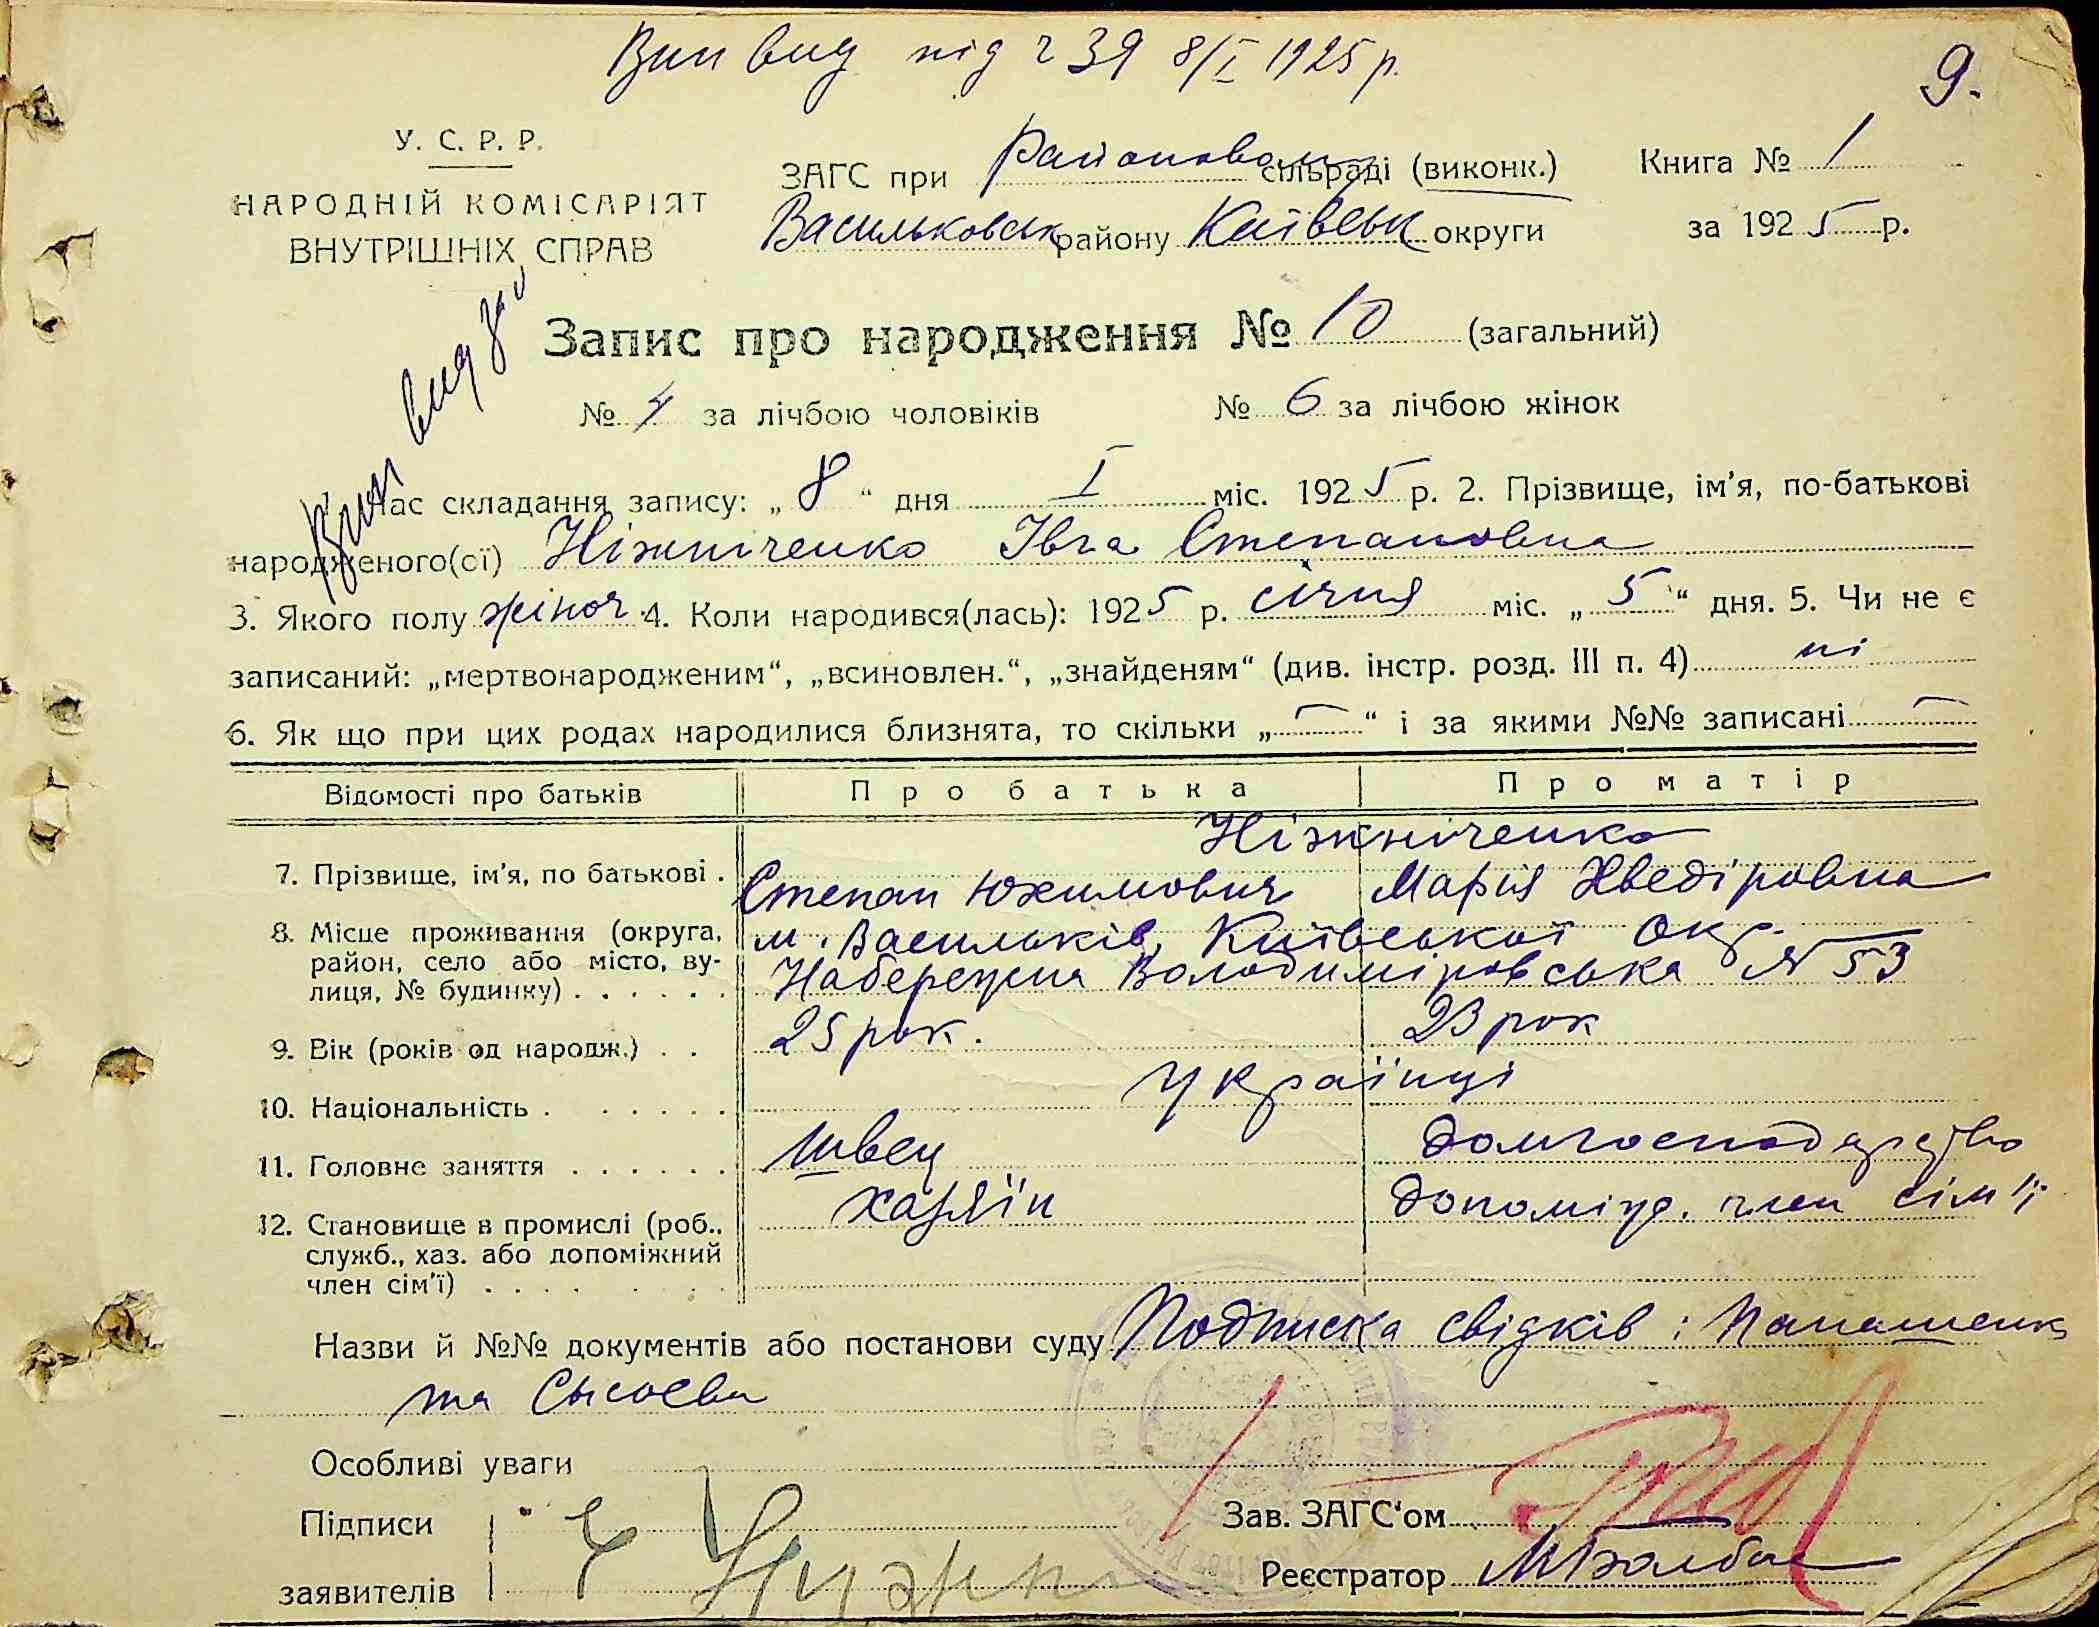 Вип вид під г 39 8/I 1925 р.
9.
У. С. Р. Р.
НАРОДНІЙ КОМІСАРІЯТ
ВНУТРІШНІХ СПРАВ
ЗАГС при Районовом сільраді (виконк.)
Васильковськ району Київськ округи
Книга № 1
за 1925 р.
Вип вид
Запис про народження № 10 (загальний)
№ 4 за лічбою чоловіків № 6 за лічбою жінок
Час складання запису: „ 8 “ дня I міс. 1925 р. 2. Прізвище, ім'я, по-батькові
народженого(ої) Ніжніченко Івга Степановна
3. Якого полу жіноч 4. Коли народився(лась): 1925 р. січня міс. „ 5 “ дня. 5. Чи не є
записаний: „мертвонародженим“, „всиновлен.“, „знайденям“ (див. інстр. розд. III п. 4) ні
6. Як що при цих родах народилися близнята, то скільки „ — “ і за якими №№ записані —
Відомості про батьків Про батька Про матір
Ніжніченко
7. Прізвище, ім'я, по батькові . Степан Юхимович Марія Хведіровна
8. Місце проживання (округа, район, село або місто, вулиця, № будинку) . . . . . . м. Васильків, Київської окр.
Набережна Володиміровська № 53
9. Вік (років од народж.) . . 25 рок. 23 рок
10. Національність . . . . . . . українці
11. Головне заняття . . . . . . швец домгосподарство
12. Становище в промислі (роб., служб., хаз. або допоміжний член сім'ї) . . . . хазяїн допоміжр. член сім'ї
Назви й №№ документів або постанови суду Подписка свідків: Папашенк
та Сысоєва
Особливі уваги
Підписи
заявителів
Зав. ЗАГС'ом
Реєстратор